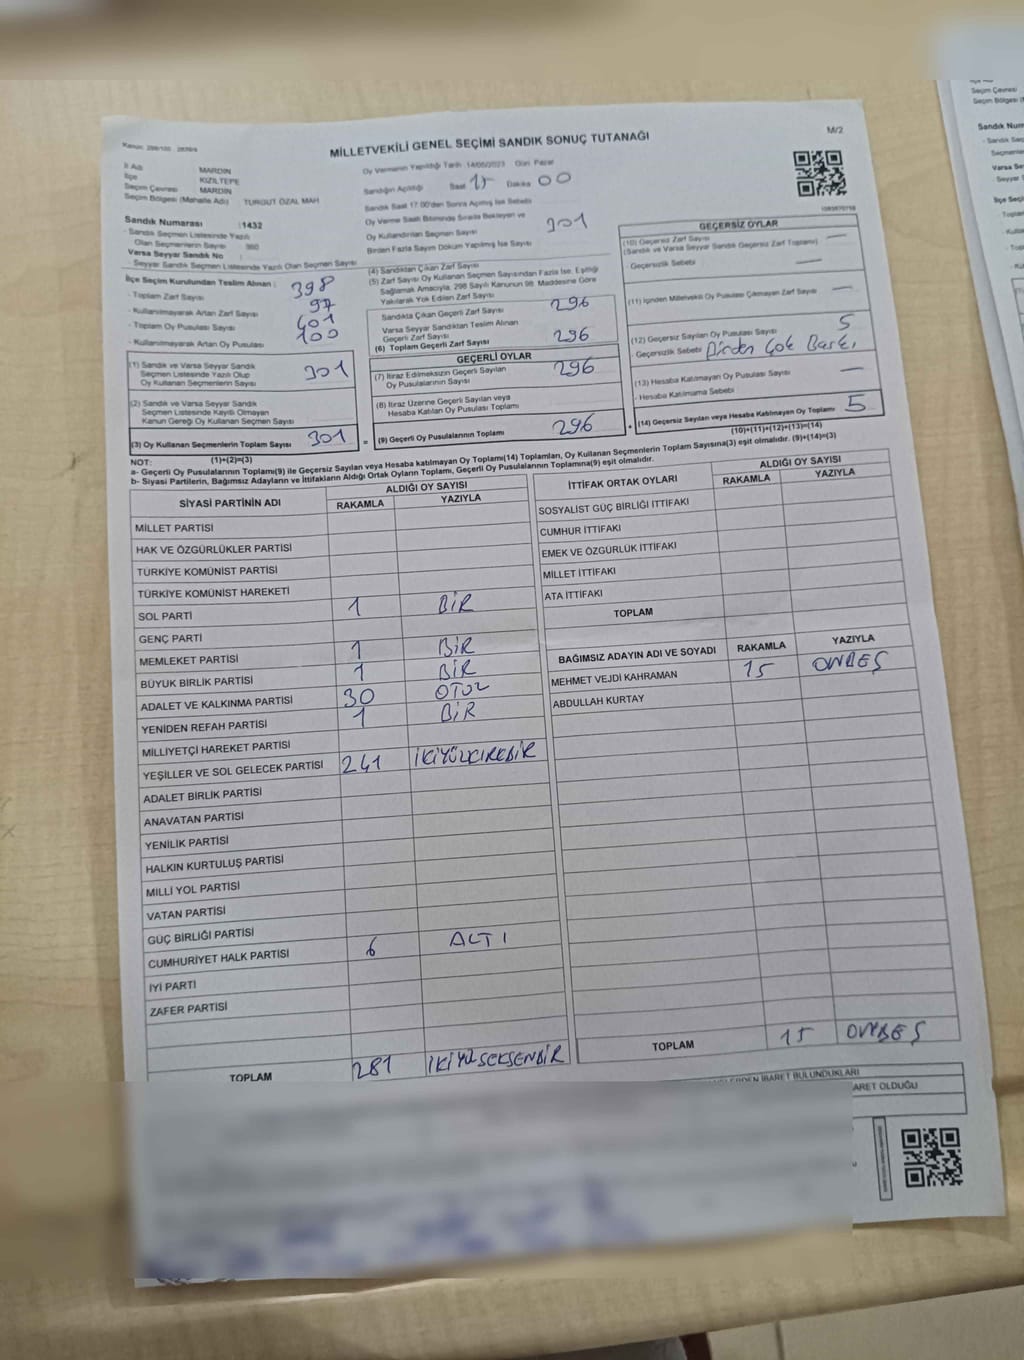 MİLLETVEKİLİ GENEL SEÇİMİ SANDIK SONUÇ TUTANAĞI
M/2
İl Adı MARDİN
İlçe KIZILTEPE
Seçim Çevresi MARDİN
Seçim Bölgesi (Mahalle Adı) TURGUT ÖZAL MAH
Oy Vermenin Yapıldığı Tarih 14/05/2023 Gün Pazar
Sandığın Açıldığı Saat 17 Dakika 00
Sandık Saat 17:00'den Sonra Açılmış İse Sebebi
Oy Verme Saati Bitiminde Sırada Bekleyen ve
Oy Kullandırılan Seçmen Sayısı 301
Birden Fazla Sayım Döküm Yapılmış İse Sayısı
Sandık Numarası :1432
- Sandık Seçmen Listesinde Yazılı
Olan Seçmenlerin Sayısı 360
Varsa Seyyar Sandık No
- Seyyar Sandık Seçmen Listesinde Yazılı Olan Seçmen Sayısı
İlçe Seçim Kurulundan Teslim Alınan :
- Toplam Zarf Sayısı 398
- Kullanılmayarak Artan Zarf Sayısı 97
- Toplam Oy Pusulası Sayısı 401
- Kullanılmayarak Artan Oy Pusulası 100
(1) Sandık ve Varsa Seyyar Sandık
Seçmen Listesinde Yazılı Olup
Oy Kullanan Seçmenlerin Sayısı 301
(2) Sandık ve Varsa Seyyar Sandık
Seçmen Listesinde Kayıtlı Olmayan
Kanun Gereği Oy Kullanan Seçmen Sayısı
(3) Oy Kullanan Seçmenlerin Toplam Sayısı 301
(1)+(2)=(3)
(4) Sandıktan Çıkan Zarf Sayısı
(5) Zarf Sayısı Oy Kullanan Seçmen Sayısından Fazla İse, Eşitliği
Sağlamak Amacıyla, 298 Sayılı Kanunun 98. Maddesine Göre
Yakılarak Yok Edilen Zarf Sayısı
Sandıkta Çıkan Geçerli Zarf Sayısı 296
Varsa Seyyar Sandıktan Teslim Alınan
Geçerli Zarf Sayısı
(6) Toplam Geçerli Zarf Sayısı 296
GEÇERLİ OYLAR
(7) İtiraz Edilmeksizin Geçerli Sayılan
Oy Pusulalarının Sayısı 296
(8) İtiraz Üzerine Geçerli Sayılan veya
Hesaba Katılan Oy Pusulası Toplamı
= (9) Geçerli Oy Pusulalarının Toplamı 296
GEÇERSİZ OYLAR
(10) Geçersiz Zarf Sayısı —
(Sandık ve Varsa Seyyar Sandık Geçersiz Zarf Toplamı)
- Geçersizlik Sebebi —
(11) İçinden Milletvekili Oy Pusulası Çıkmayan Zarf Sayısı —
(12) Geçersiz Sayılan Oy Pusulası Sayısı 5
- Geçersizlik Sebebi Birden Çok Baskı
(13) Hesaba Katılmayan Oy Pusulası Sayısı —
- Hesaba Katılmama Sebebi
+ (14) Geçersiz Sayılan veya Hesaba Katılmayan Oy Toplamı 5
(10)+(11)+(12)+(13)=(14)
NOT:
a- Geçerli Oy Pusulalarının Toplamı(9) ile Geçersiz Sayılan veya Hesaba katılmayan Oy Toplamı(14) Toplamları, Oy Kullanan Seçmenlerin Toplam Sayısına(3) eşit olmalıdır. (9)+(14)=(3)
b- Siyasi Partilerin, Bağımsız Adayların ve İttifakların Aldığı Ortak Oyların Toplamı, Geçerli Oy Pusulalarının Toplamına(9) eşit olmalıdır.
SİYASİ PARTİNİN ADI
ALDIĞI OY SAYISI
RAKAMLA YAZIYLA
MİLLET PARTİSİ
HAK VE ÖZGÜRLÜKLER PARTİSİ
TÜRKİYE KOMÜNİST PARTİSİ
TÜRKİYE KOMÜNİST HAREKETİ
SOL PARTİ 1 BİR
GENÇ PARTİ
MEMLEKET PARTİSİ 1 BİR
BÜYÜK BİRLİK PARTİSİ 1 BİR
ADALET VE KALKINMA PARTİSİ 30 OTUZ
YENİDEN REFAH PARTİSİ 1 BİR
MİLLİYETÇİ HAREKET PARTİSİ
YEŞİLLER VE SOL GELECEK PARTİSİ 241 İKİYÜZKIRKBİR
ADALET BİRLİK PARTİSİ
ANAVATAN PARTİSİ
YENİLİK PARTİSİ
HALKIN KURTULUŞ PARTİSİ
MİLLİ YOL PARTİSİ
VATAN PARTİSİ
GÜÇ BİRLİĞİ PARTİSİ
CUMHURİYET HALK PARTİSİ 6 ALTI
İYİ PARTİ
ZAFER PARTİSİ
TOPLAM 281 İKİYÜZSEKSENBİR
İTTİFAK ORTAK OYLARI
ALDIĞI OY SAYISI
RAKAMLA YAZIYLA
SOSYALİST GÜÇ BİRLİĞİ İTTİFAKI
CUMHUR İTTİFAKI
EMEK VE ÖZGÜRLÜK İTTİFAKI
MİLLET İTTİFAKI
ATA İTTİFAKI
TOPLAM
BAĞIMSIZ ADAYIN ADI VE SOYADI RAKAMLA YAZIYLA
MEHMET VEJDİ KAHRAMAN 15 ONBEŞ
ABDULLAH KURTAY
TOPLAM 15 ONBEŞ
İBARET BULUNDUKLARI
ARET OLDUĞU
Seçim Çevresi
Sandık Num